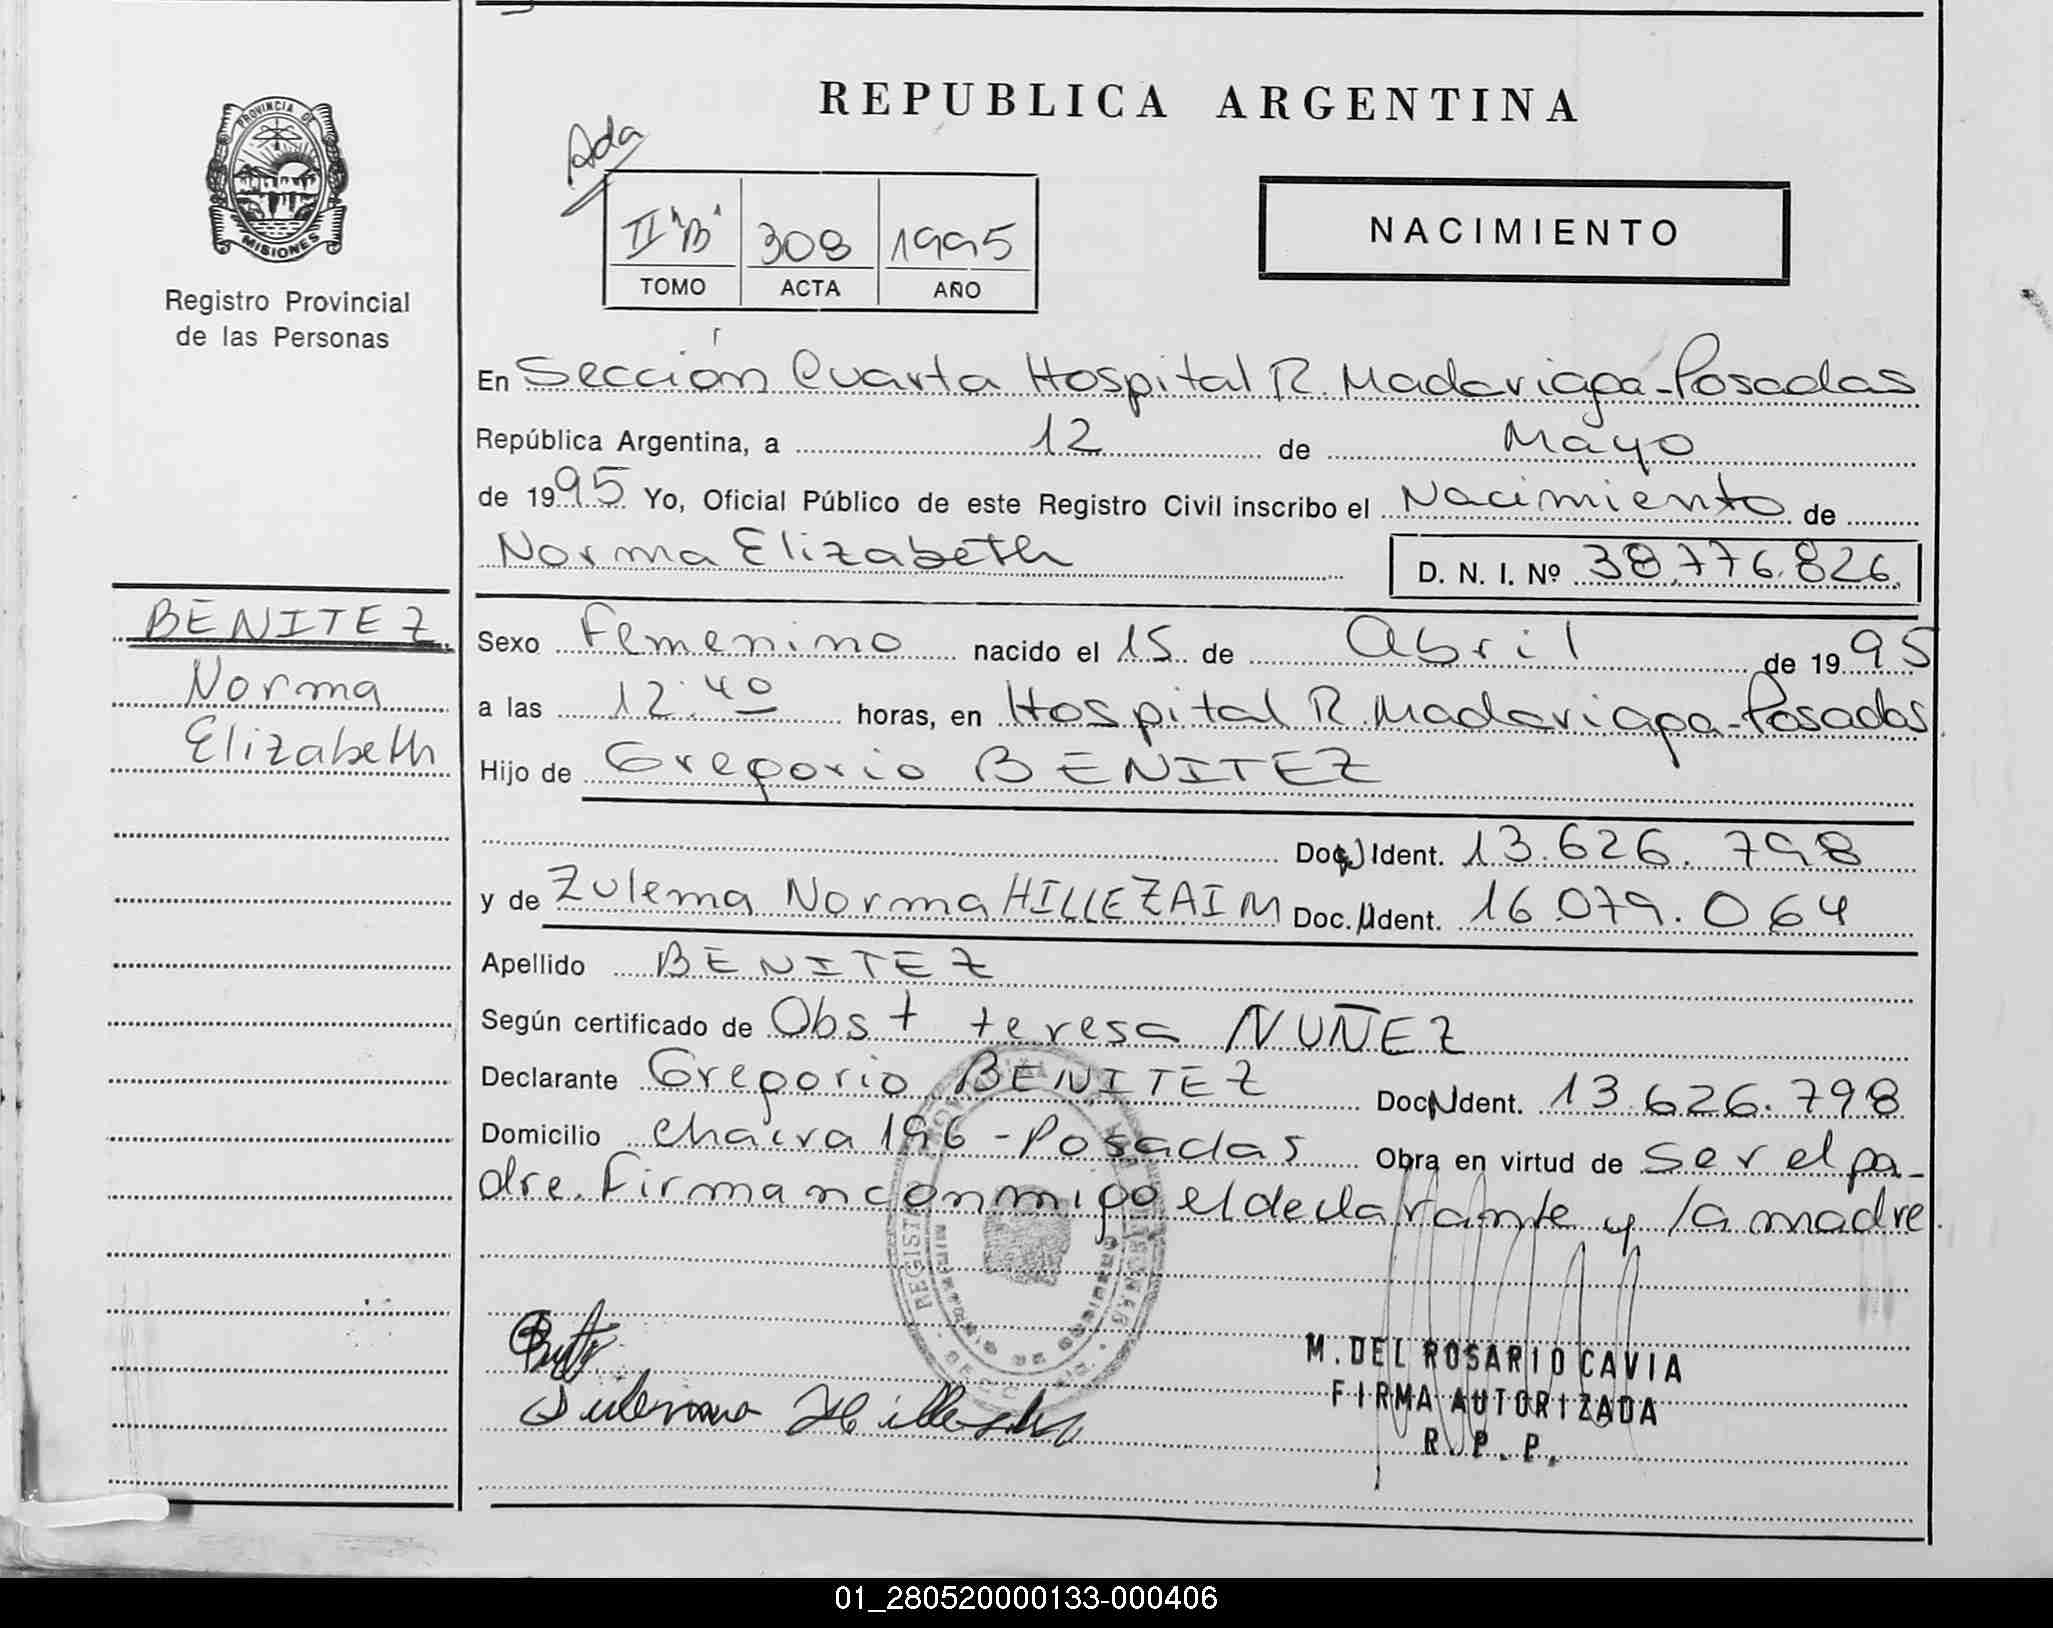 PROVINCIA DE
MISIONES
Registro Provincial
de las Personas
BENITEZ
Norma
Elizabeth
REPUBLICA ARGENTINA
Ada
II "B" 308 1995
TOMO ACTA AÑO
NACIMIENTO
En Sección Cuarta Hospital R. Madariaga-Posadas
República Argentina, a 12 de Mayo
de 1995 Yo, Oficial Público de este Registro Civil inscribo el Nacimiento de
Norma Elizabeth D. N. I. Nº 38.776.826.
Sexo Femenino nacido el 15 de Abril de 1995
a las 12:40 horas, en Hospital R. Madariaga-Posadas
Hijo de Gregorio BENITEZ
Doc. Ident. 13.626.798
y de Zulema Norma HILLEZAIM Doc. Ident. 16.079.064
Apellido BENITEZ
Según certificado de Obst teresa NUÑEZ
Declarante Gregorio BENITEZ Doc. Ident. 13.626.798
Domicilio chacra 196 - Posadas Obra en virtud de ser el pa-
dre. Firman conmigo el declarante y la madre.
M. DEL ROSARIO CAVIA
FIRMA AUTORIZADA
R. P. P.
01_280520000133-000406